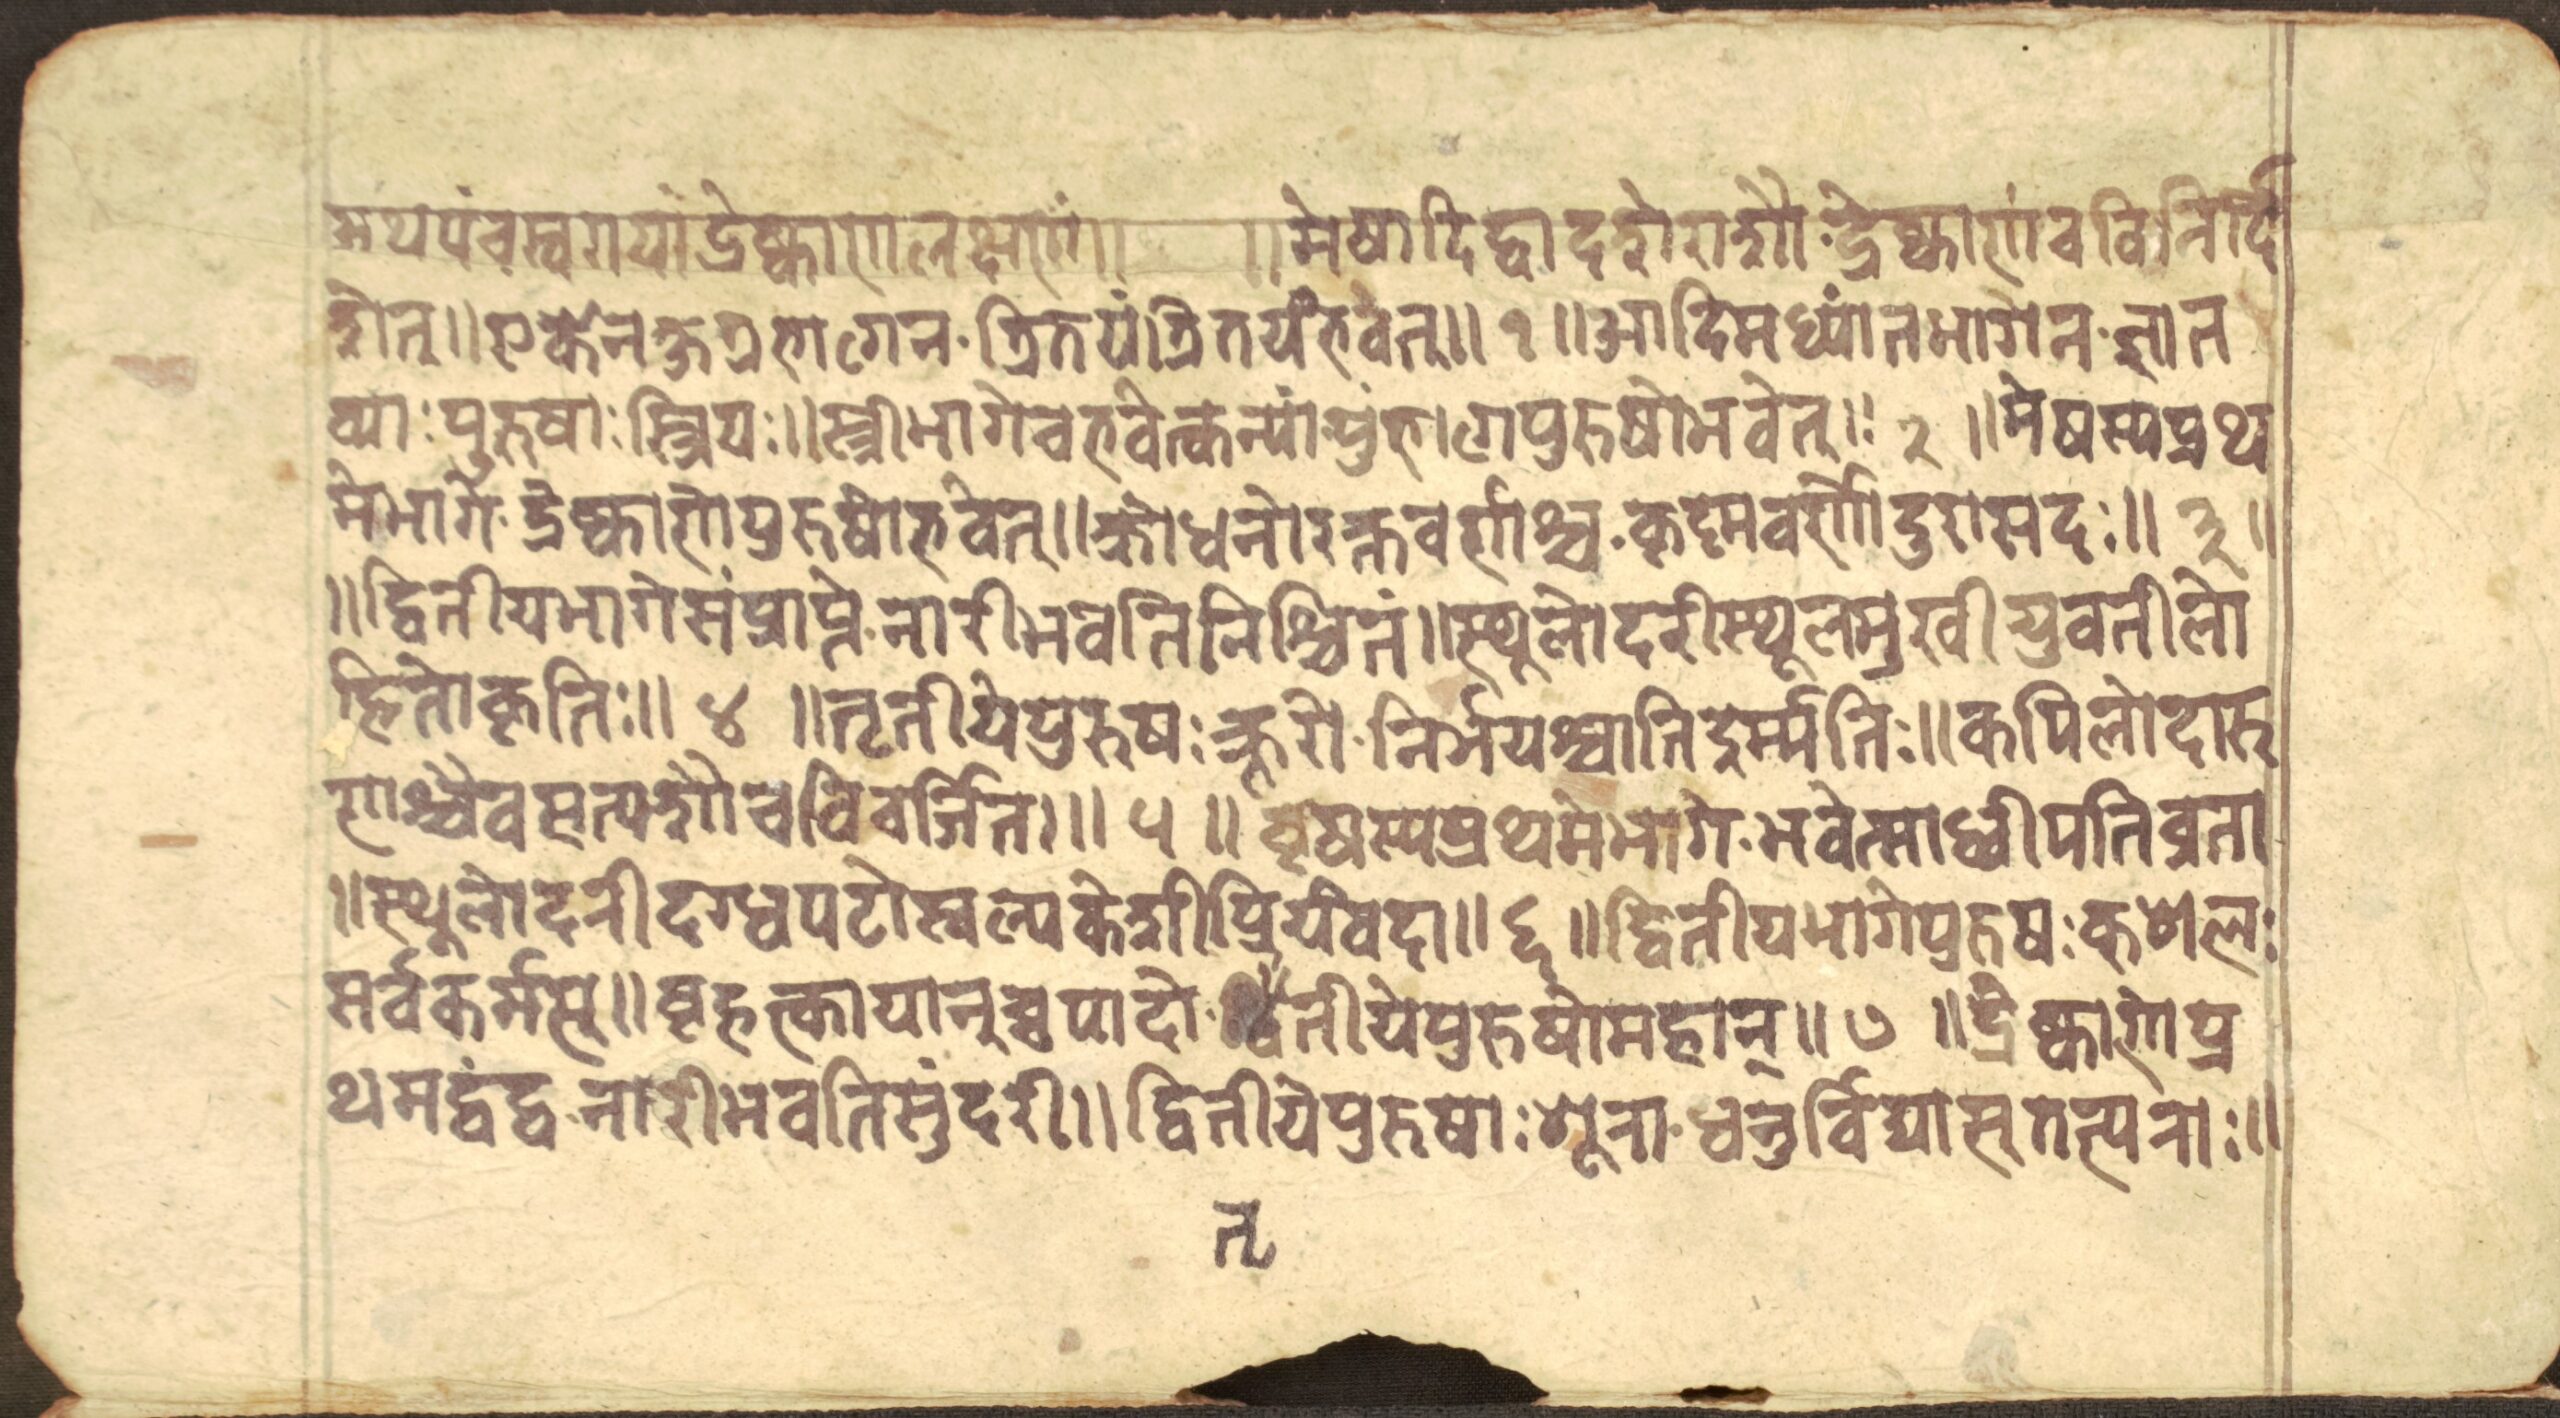 अथपंचस्वरायांद्रेष्काणालक्षणं॥ ॥मेषादिद्वादशेराशौ·द्रेष्काणांचविनिर्दि
शेत्॥एकैनक्षत्रभागेन·त्रितयंत्रितयंभवेत्॥ १ ॥आदिमध्यांतभागेन·ज्ञात
व्याः पुरुषाः स्त्रियः॥स्त्रीभागेचभवेत्कन्यां·पुंभागेपुरुषोभवेत्॥ २ ॥मेषस्यप्रथ
मेभागे·द्रेष्काणेपुरुषोभवेत्॥क्रोधनोरक्तवर्णाश्च·कृष्णवर्णोदुरासदः॥ ३ ॥
॥द्वितीयभागेसंप्राप्ते·नारीभवतिनिश्चितं॥स्थूलोदरीस्थूलमुखीयुवतीलो
हिताकृतिः॥ ४ ॥तृतीयेपुरुषः क्रूरो·निर्भयश्चातिदुर्म्मतिः॥कपिलोदारु
णाश्चैवसत्यशौचविवर्जितः॥ ५ ॥ वृषस्यप्रथमेभागे·भवेत्साध्वीपतिव्रता
॥स्थूलोदरीदग्धपटास्वल्पकेशीप्रियंवदा॥ ६ ॥द्वितीयभागेपुरुषः कुशलः
सर्वकर्मसु॥बृहत्कायानुच्चपादो· तीयेपुरुषोमहान्॥ ७ ॥द्रेष्काणेप्र
थमद्वंद्व·नारीभवतिसुंदरी॥द्वितीयेपुरुषाः शूरा·धनुर्विद्यासुतत्पराः॥
तृ